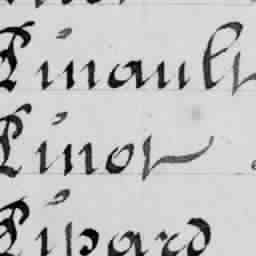 Pinault
Pinot
Pipard